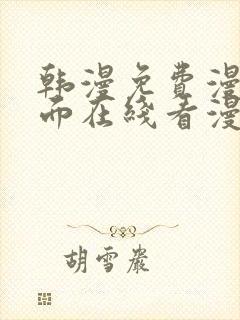 韩漫免费漫
而在线看漫
胡雪岩